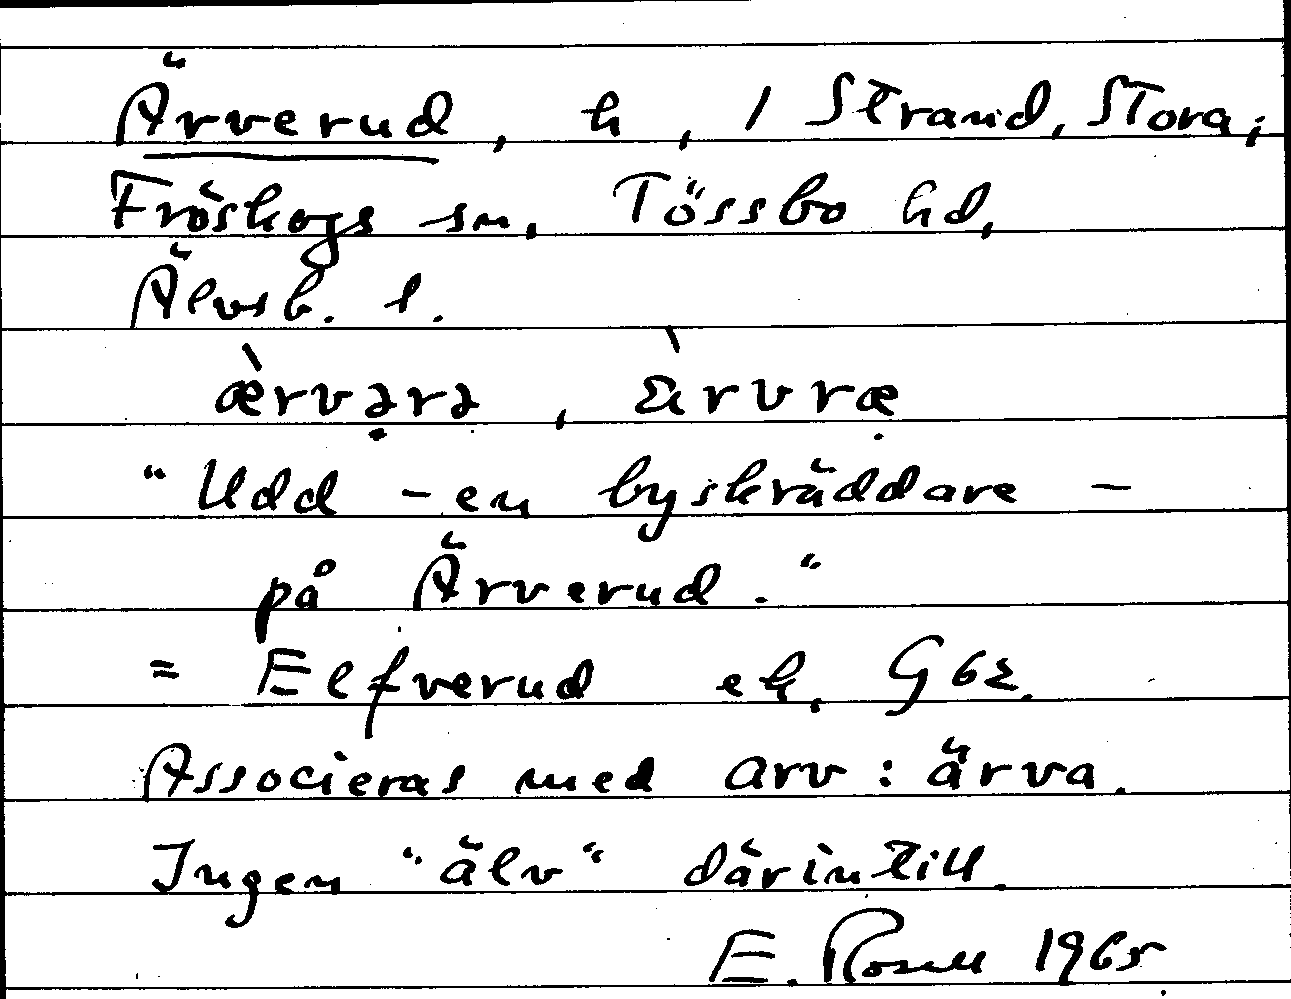 Ärverud, h, 1 Strand, Stora,
Fröskogs sn, Tössbo hd,
Älvsb. l.
æ̀rvərə, ærvræ
"Udd - en byskräddare -
på Ärverud."
= Elfverud ek. G62.
Associeras med arv : ärva.
Ingen "älv" därintill.
E. Rosell 1965